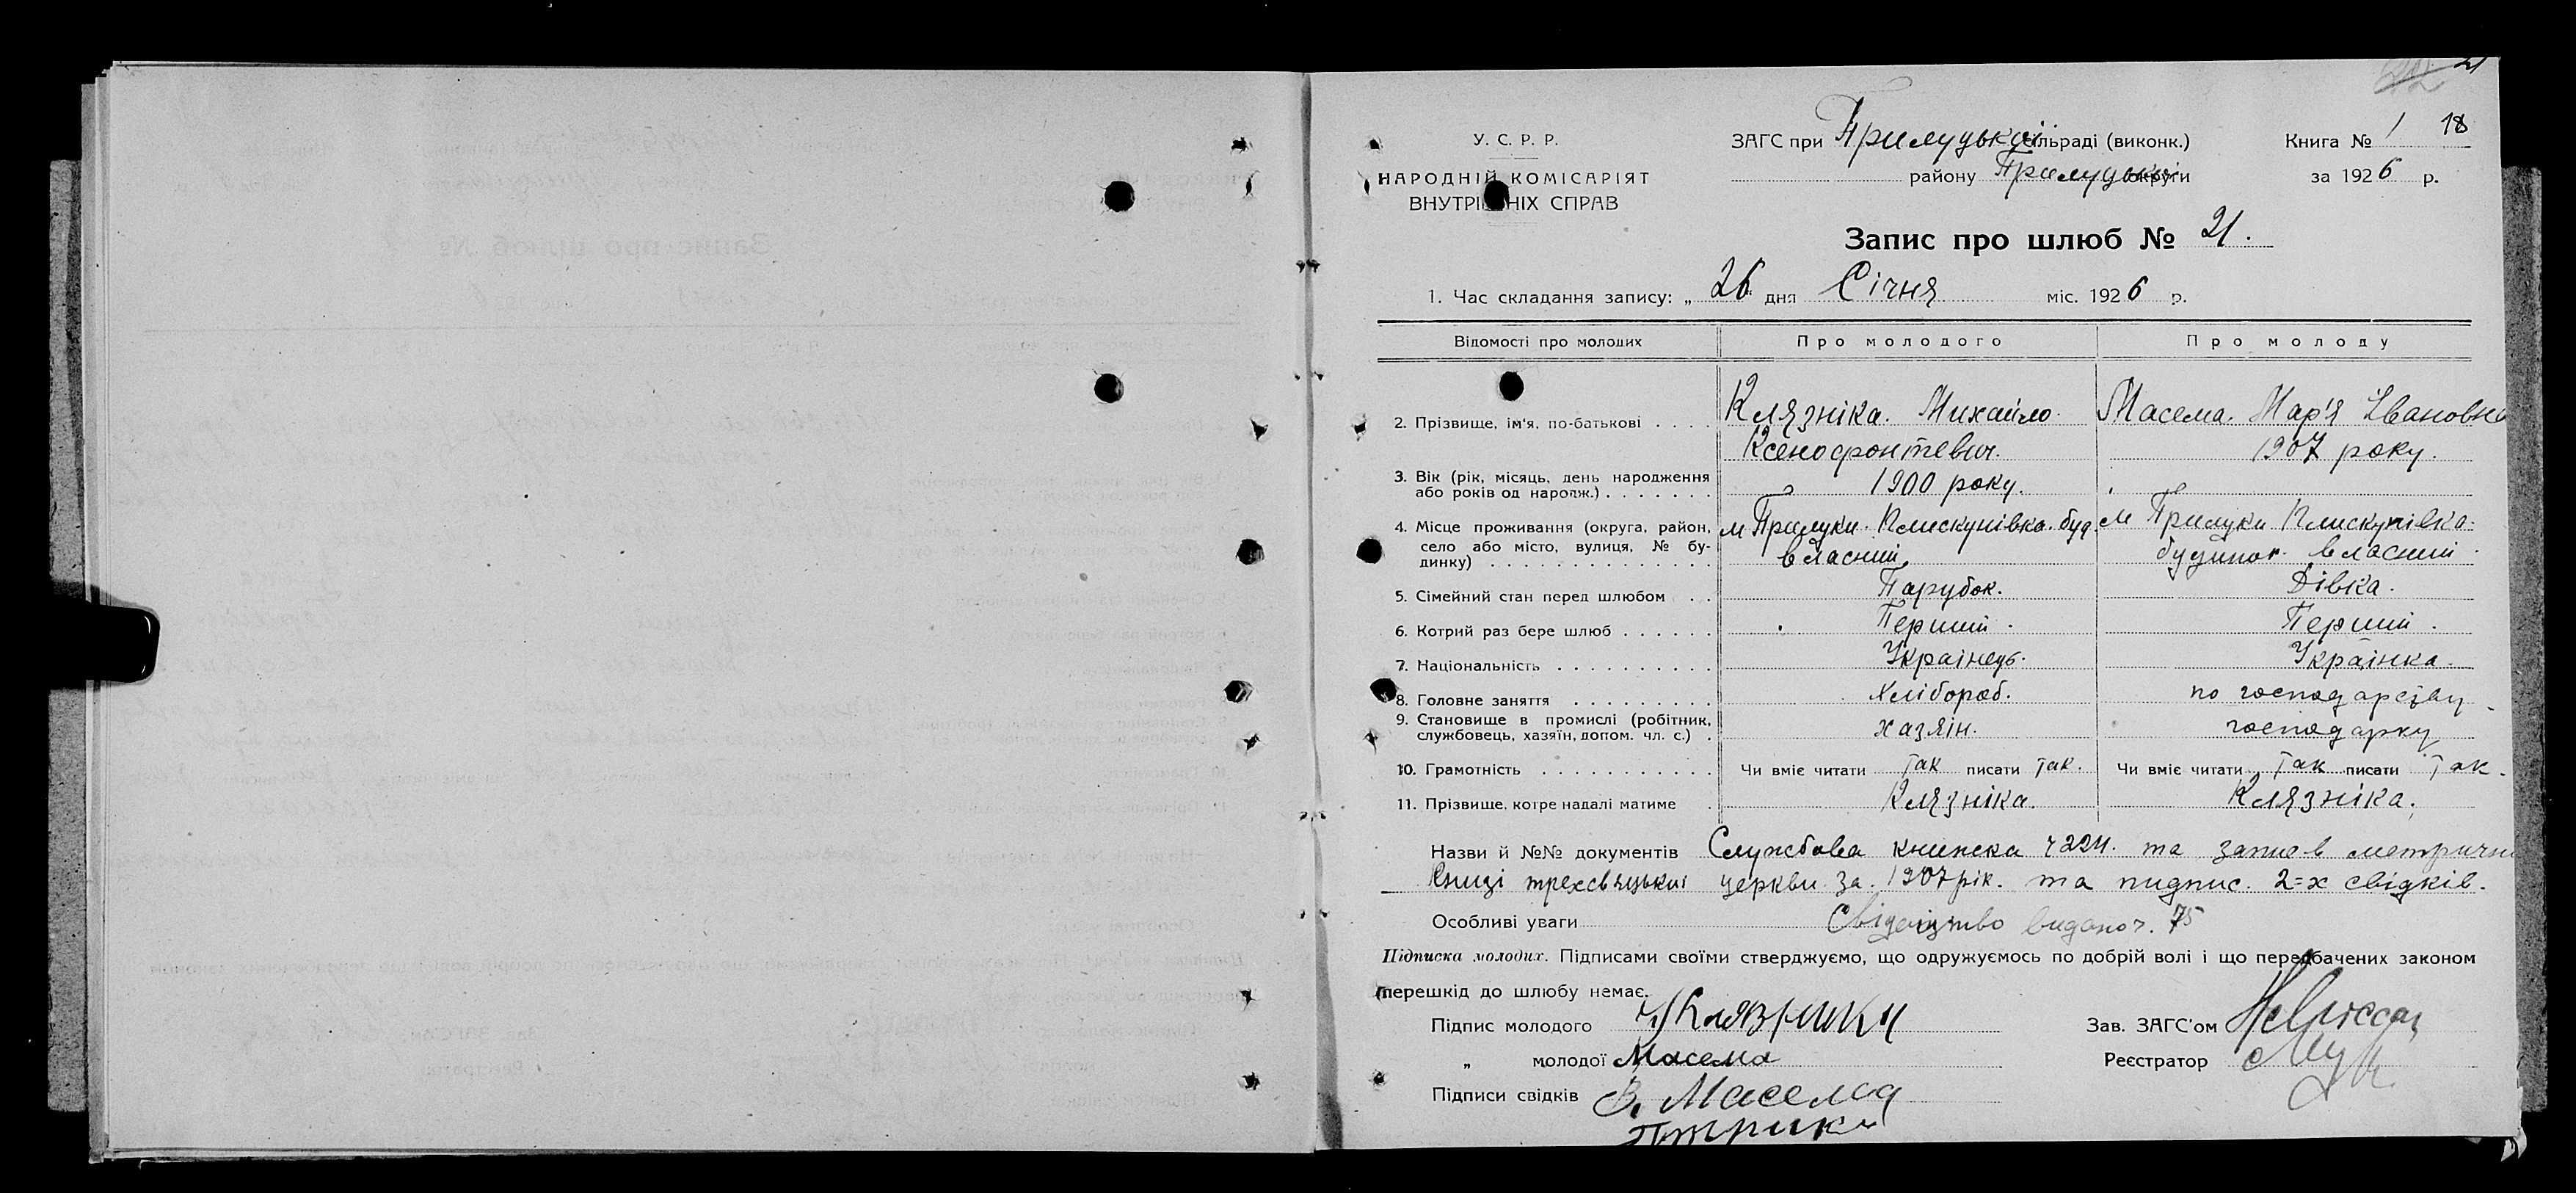 21
У. С. Р. Р.
НАРОДНІЙ КОМІСАРІЯТ
ВНУТРІШНІХ СПРАВ
ЗАГС при Прилуцькій сільраді (виконк.)
району Прилуцької округи
Книга № 1 18
за 1926 р.
Запис про шлюб № 21.
1. Час складання запису: „ 26 " дня Січня міс. 1926 р.
Відомості про молодих
Про молодого
Про молоду
2. Прізвище, ім'я, по-батькові . . . .
Клязніка. Михайло.
Ксенофонтевич.
Масема. Мар'я Івановна
3. Вік (рік, місяць, день народження
або років од народж.) . . . . . . .
1900 року.
1907 року.
4. Місце проживання (округа, район,
село або місто, вулиця, № бу-
динку) . . . . . . . . . . . . . .
м Прилуки. Плискунівка. буд.
власний
м Прилуки Плискунівка.
будинок. власний.
5. Сімейний стан перед шлюбом . .
Парубок.
Дівка.
6. Котрий раз бере шлюб . . . . . .
Перший.
Перший.
7. Національність . . . . . . . . . .
Українець.
Українка.
8. Головне заняття . . . . . . . . .
Хлібороб.
по господарству
9. Становище в промислі (робітник,
службовець, хазяїн, допом. чл. с.) .
хазяін.
господарку
10. Грамотність . . . . . . . . . . .
Чи вміє читати так писати так.
Чи вміє читати так писати так.
11. Прізвище, котре надалі матиме .
Клязніка.
Клязніка.
Назви й №№ документів Службова книжка ч 224. та запис в метричн
Книзі трехсвяцькоі церкви за. 1907 рік. та пидпис. 2=х свідків.
Особливі уваги Свідоцтво видано ч. 75
Підписка молодих. Підписами своїми стверджуємо, що одружуємось по добрій волі і що передбачених законом
перешкід до шлюбу немає.
Підпис молодого
Зав. ЗАГС'ом
„ молодої Масема
Реєстратор
Підписи свідків В. Масема